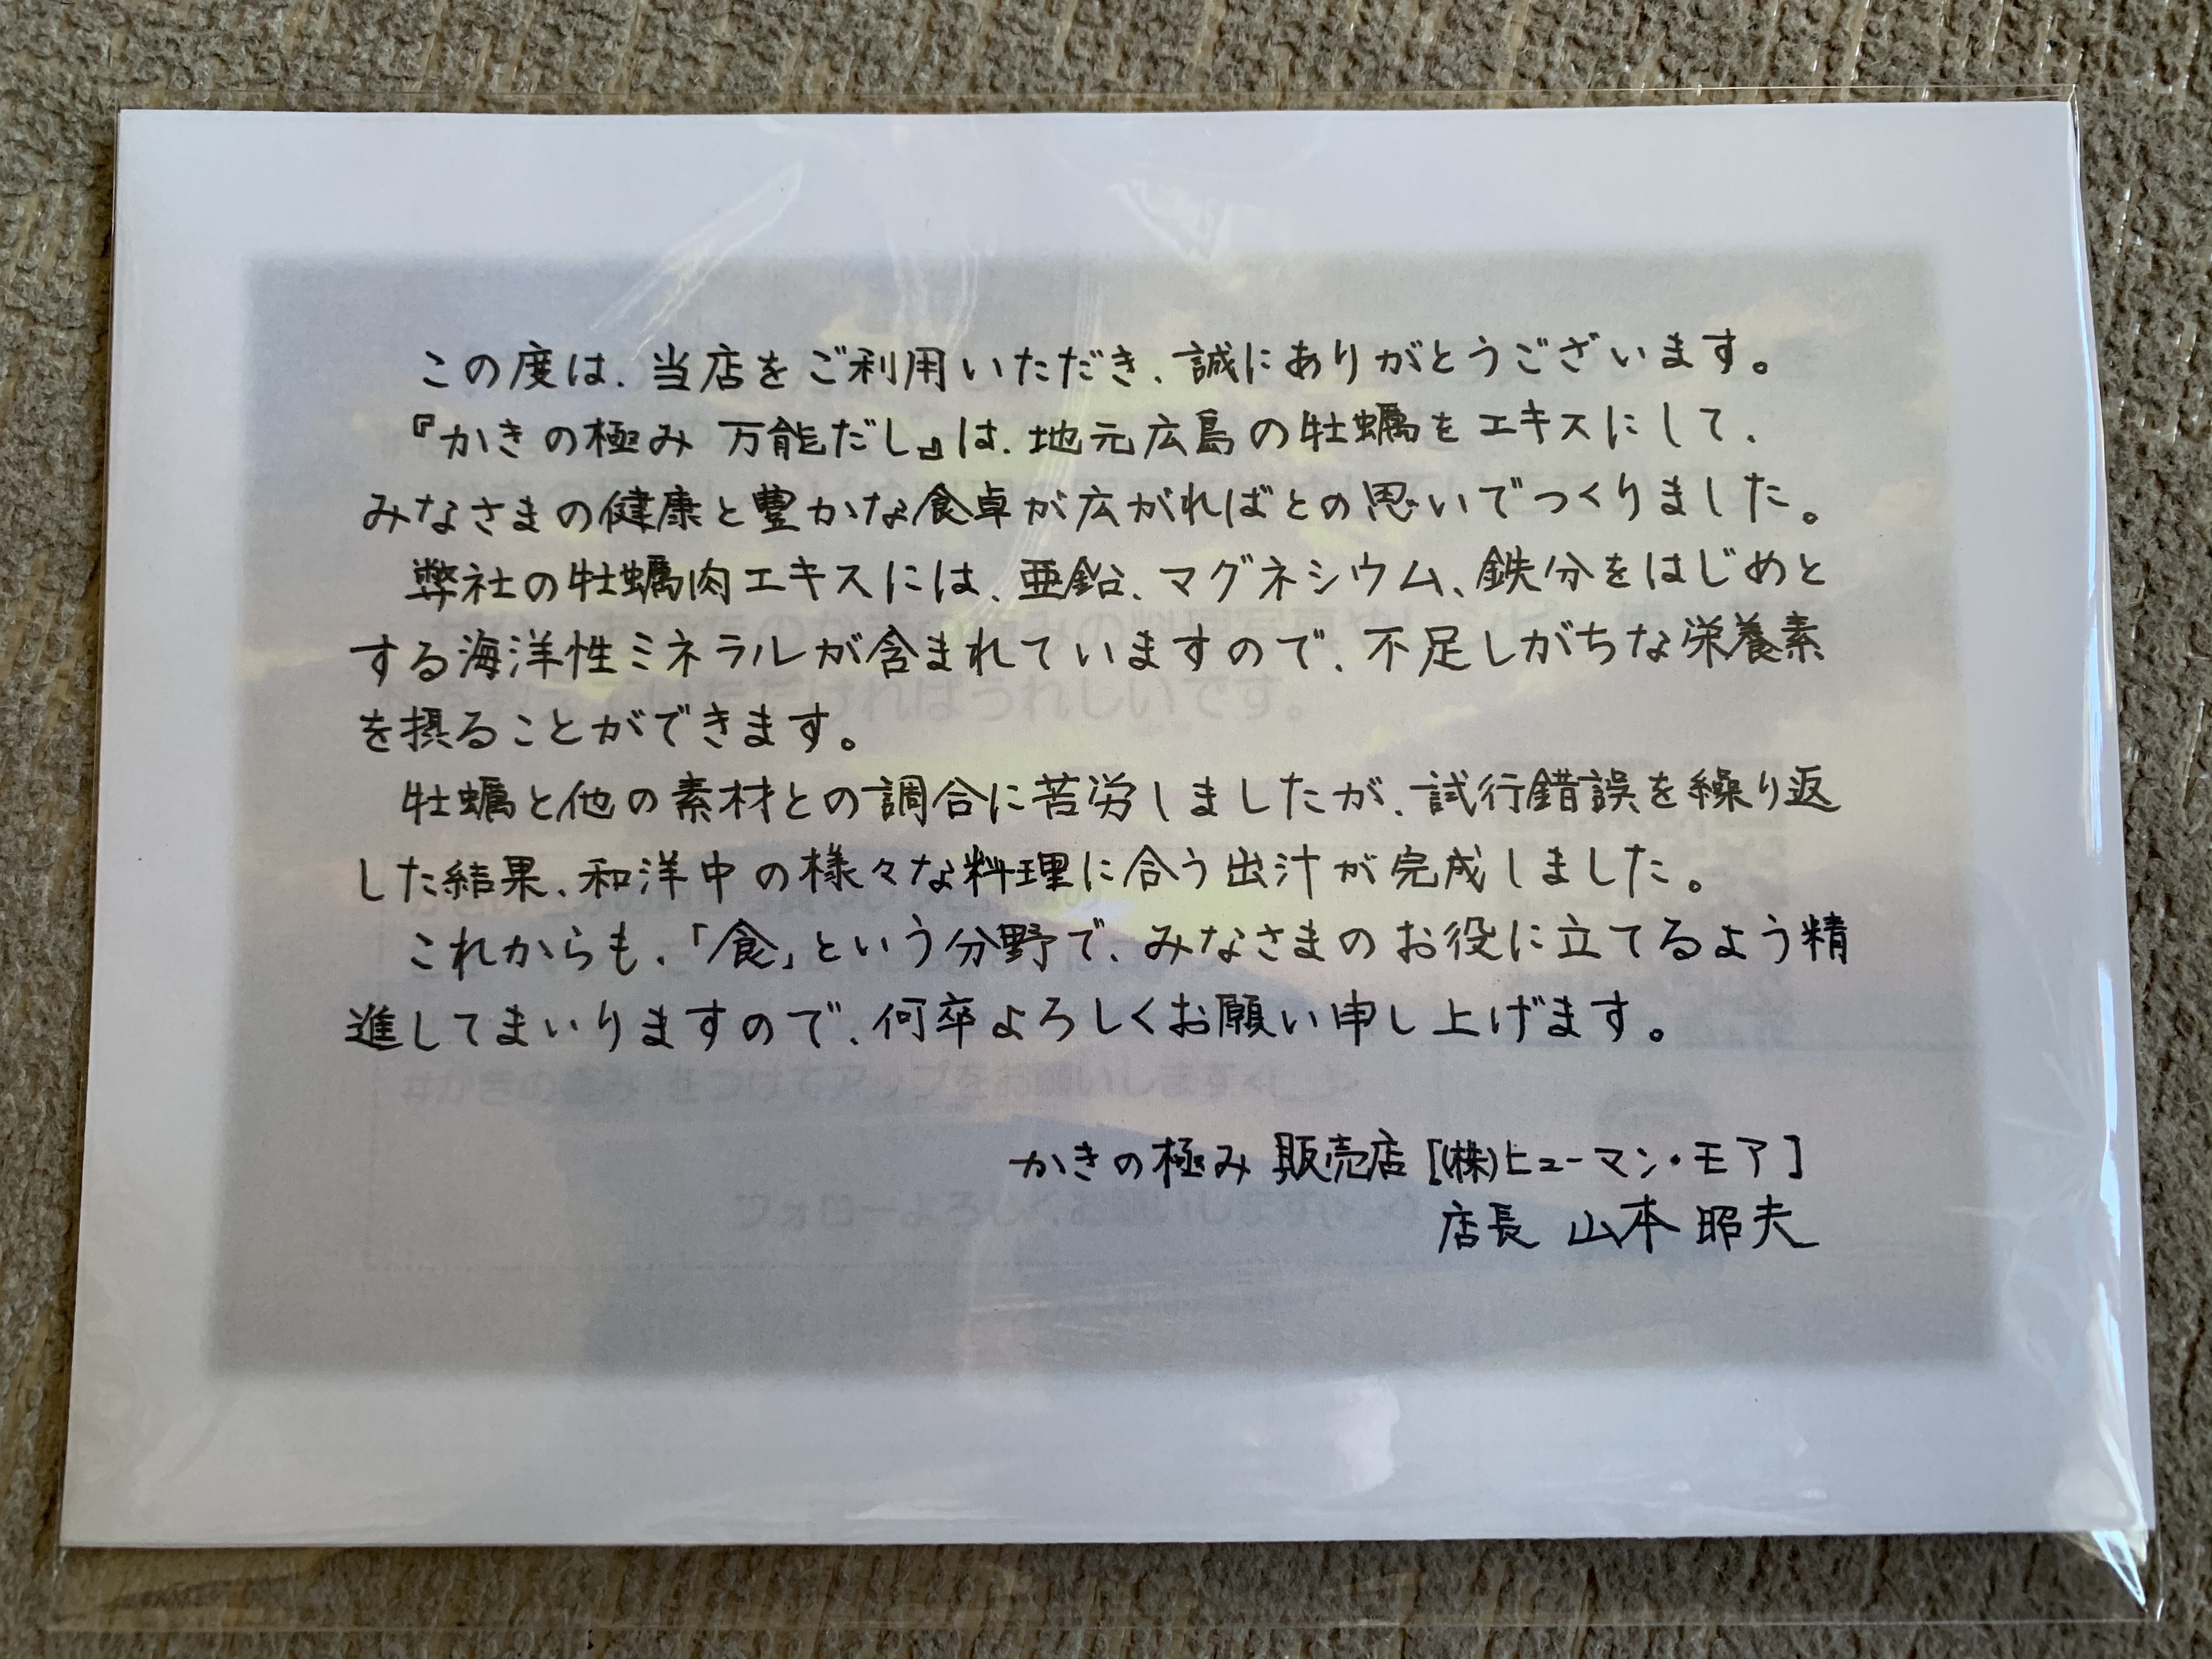 この度は、当店をご利用いただき、誠にありがとうございます。
『かきの極み 万能だし』は、地元広島の牡蠣をエキスにして、
みなさまの健康と豊かな食卓が広がればとの思いでつくりました。
弊社の牡蠣肉エキスには、亜鉛、マグネシウム、鉄分をはじめと
する海洋性ミネラルが含まれていますので、不足しがちな栄養素
を摂ることができます。
牡蠣と他の素材との調合に苦労しましたが、試行錯誤を繰り返
した結果、和洋中の様々な料理に合う出汁が完成しました。
これからも、「食」という分野で、みなさまのお役に立てるよう精
進してまいりますので、何卒よろしくお願い申し上げます。
#かきの極み をつけてアップをお願いします
かきの極み 販売店 [(株)ヒューマン・モア]
フォローよろしくお願いします
店長 山本 昭夫